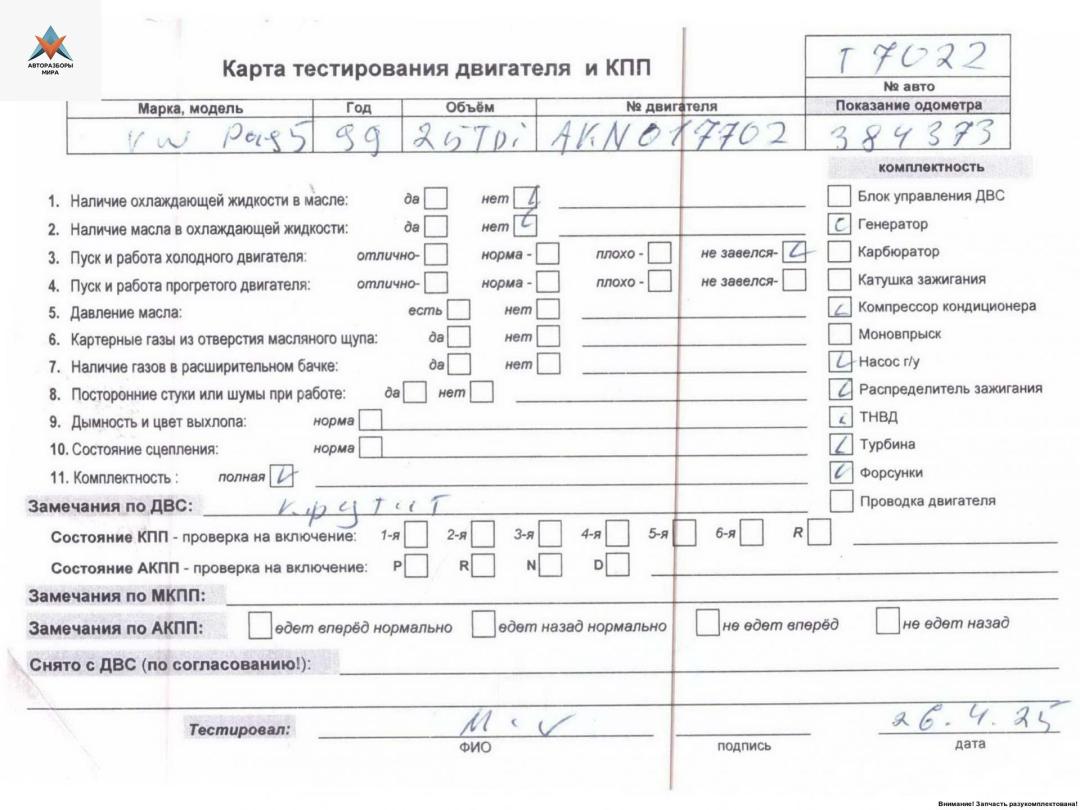 АВТОРАЗБОРЫ
МИРА
Карта тестирования двигателя и КПП
Т 7022
№ авто
Марка, модель Год Объём № двигателя Показание одометра
VW Pas5 99 25TDi AKN017702 384373
комплектность
1. Наличие охлаждающей жидкости в масле: да нет
Блок управления ДВС
2. Наличие масла в охлаждающей жидкости: да нет
Генератор
3. Пуск и работа холодного двигателя: отлично- норма - плохо - не завелся-
Карбюратор
4. Пуск и работа прогретого двигателя: отлично- норма - плохо - не завелся-
Катушка зажигания
5. Давление масла: есть нет
Компрессор кондиционера
6. Картерные газы из отверстия масляного щупа: да нет
Моновпрыск
7. Наличие газов в расширительном бачке: да нет
Насос г/у
8. Посторонние стуки или шумы при работе: да нет
Распределитель зажигания
9. Дымность и цвет выхлопа: норма
ТНВД
10. Состояние сцепления: норма
Турбина
11. Комплектность : полная
Форсунки
Замечания по ДВС: крутит
Проводка двигателя
Состояние КПП - проверка на включение: 1-я 2-я 3-я 4-я 5-я 6-я R
Состояние АКПП - проверка на включение: P R N D
Замечания по МКПП:
Замечания по АКПП: едет вперёд нормально едет назад нормально не едет вперёд не едет назад
Снято с ДВС (по согласованию!):
Тестировал: 26.4.25
ФИО подпись дата
Внимание! Запчасть разукомплектована!